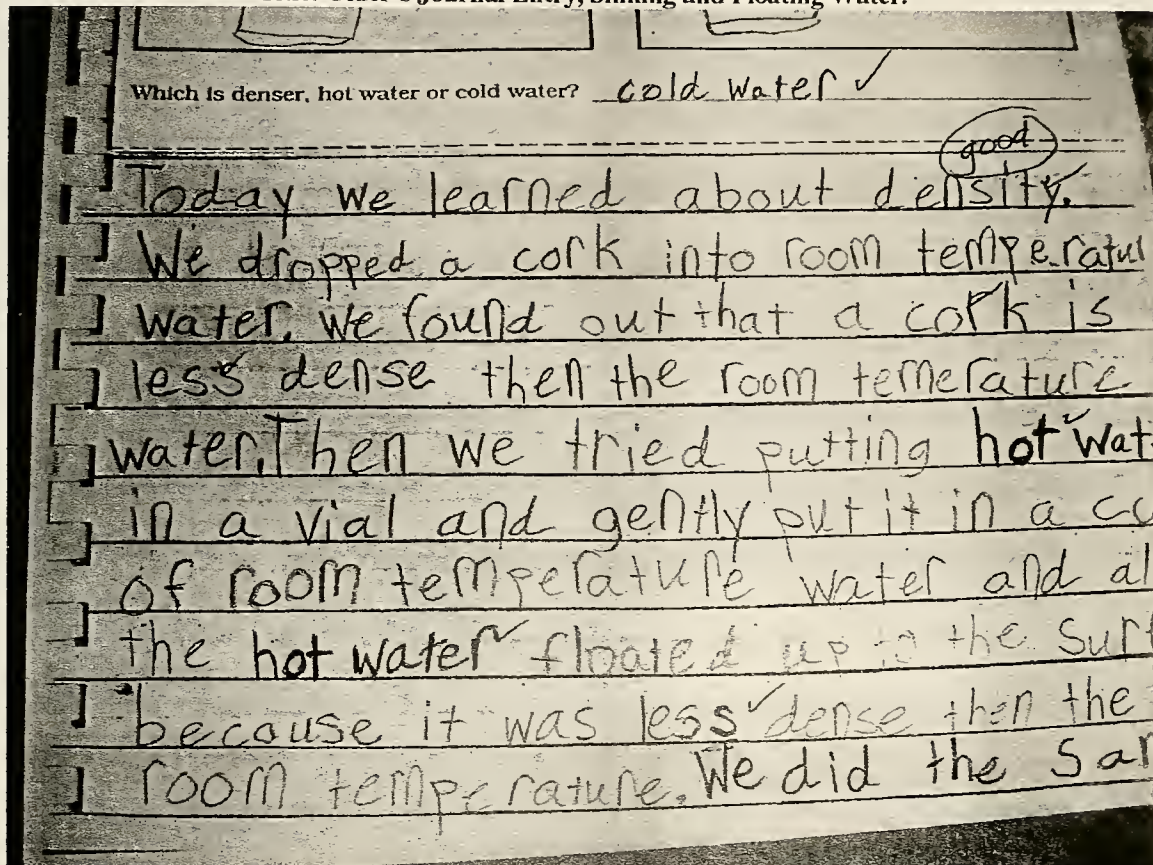 Journal Entry, Sinking and Floating Water.
Which is denser, hot water or cold water? cold water ✓
good
Today we learned about density.
We dropped a cork into room temperatur
water. We found out that a cork is
less dense then the room temerature
water. Then we tried putting hot wat
in a vial and gently put it in a cu
of room temperature water and al
the hot water floated up to the surf
because it was less dense then the
room temperature. We did the sam